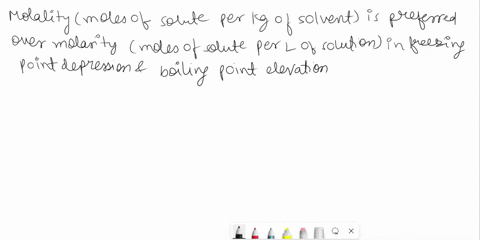 Molality (moles of solute per kg of solvent) is preferred
over molarity (moles of solute per L of solution) in freezing
point depression & boiling point elevation